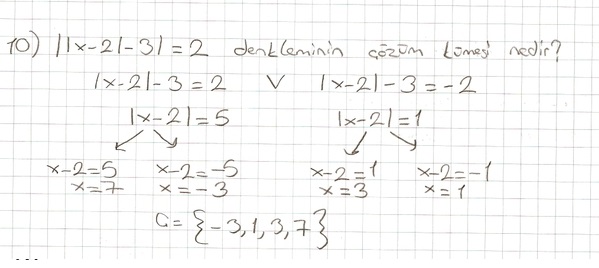 10) ||x-2|-3| = 2 denkleminin çözüm kümesi nedir?
|x-2|-3 = 2 V |x-2|-3 = -2
|x-2| = 5 |x-2| = 1
x-2=5 x-2=-5 x-2=1 x-2=-1
x=7 x=-3 x=3 x=1
Ç = {-3,1,3,7}